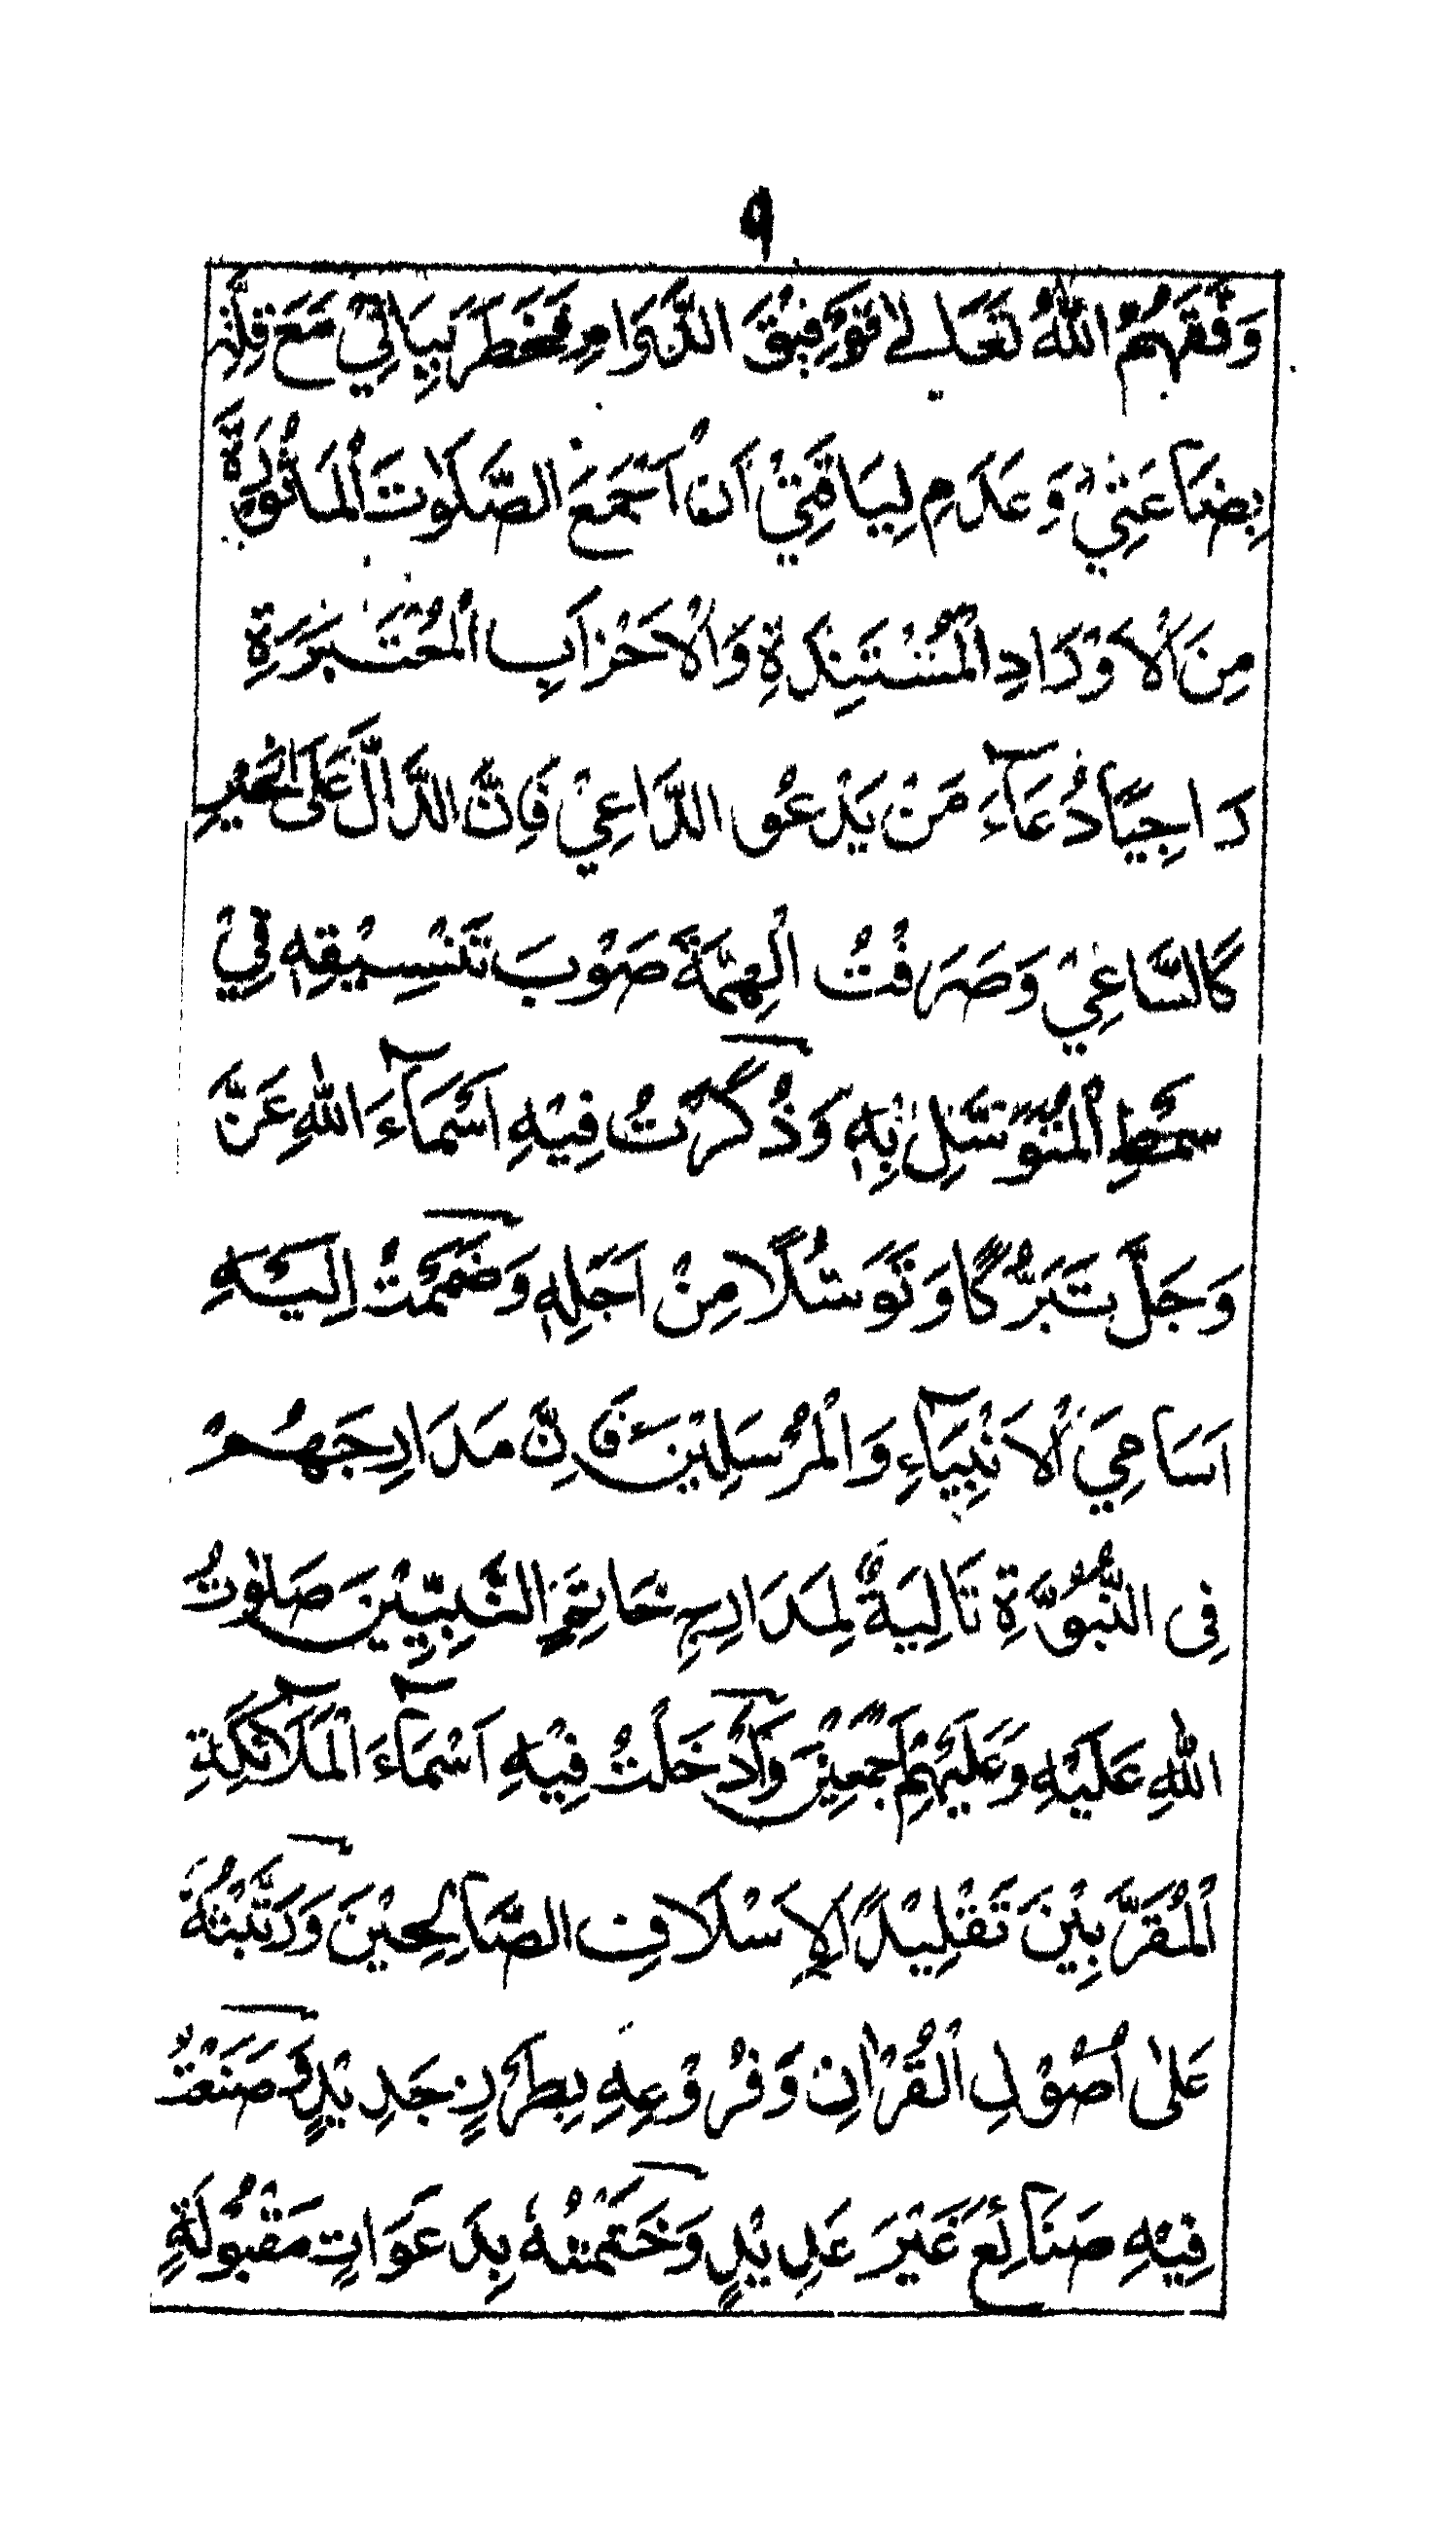 ٩
وَفَّقَهُمُ اللّٰهُ تَعَالٰے تَوْفِيْقَ الدَّوَامِ فَخَطَرَ بِبَالِيْ مَعَ قِلَّةِ
بِضَاعَتِيْ وَعَدَمِ لِيَاقَتِيْ اَنْ اَجْمَعَ الصَّلَوٰتَ الْمَأْثُوْرَةَ
مِنَ الْاَوْرَادِ الْمُسْتَنِدَةِ وَالْاَحْزَابِ الْمُعْتَبَرَةِ
رَاجِيًا دُعَآءَ مَنْ يَدْعُو الدَّاعِيْ فَاِنَّ الدَّالَّ عَلَى الْخَيْرِ
كَالسَّاعِيْ وَصَرَفْتُ الْهِمَّةَ صَوْبَ تَنْسِيْقِهٖ فِيْ
سِمْطِ الْمُتَوَسَّلِ بِهٖ وَذَكَرْتُ فِيْهِ اَسْمَآءَ اللّٰهِ عَزَّ
وَجَلَّ تَبَرُّكًا وَتَوَسُّلًا مِنْ اَجَلِهٖ وَضَمَمْتُ اِلَيْهِ
اَسَامِيَ الْاَنْبِيَآءِ وَالْمُرْسَلِيْنَ فَاِنَّ مَدَارِجَهُمْ
فِى النُّبُوَّةِ تَالِيَةٌ لِمَدَارِجِ خَاتِمِ النَّبِيِّيْنَ صَلَوٰتُ
اللّٰهِ عَلَيْهِ وَعَلَيْهِمْ اَجْمَعِيْنَ وَاَدْخَلْتُ فِيْهِ اَسْمَآءَ الْمَلَآئِكَةِ
الْمُقَرَّبِيْنَ تَقْلِيْدًا لِاَسْلَافِ الصَّالِحِيْنَ وَرَتَّبْتُهٗ
عَلٰى اُصُوْلِ الْقُرْاٰنِ وَفُرُوْعِهٖ بِطَرْزٍ جَدِيْدٍ وَصَنَعْتُ
فِيْهِ صَنَائِعَ غَيْرَ عَدِيْدٍ وَخَتَمْتُهٗ بِدَعَوَاتٍ مَقْبُوْلَةٍ